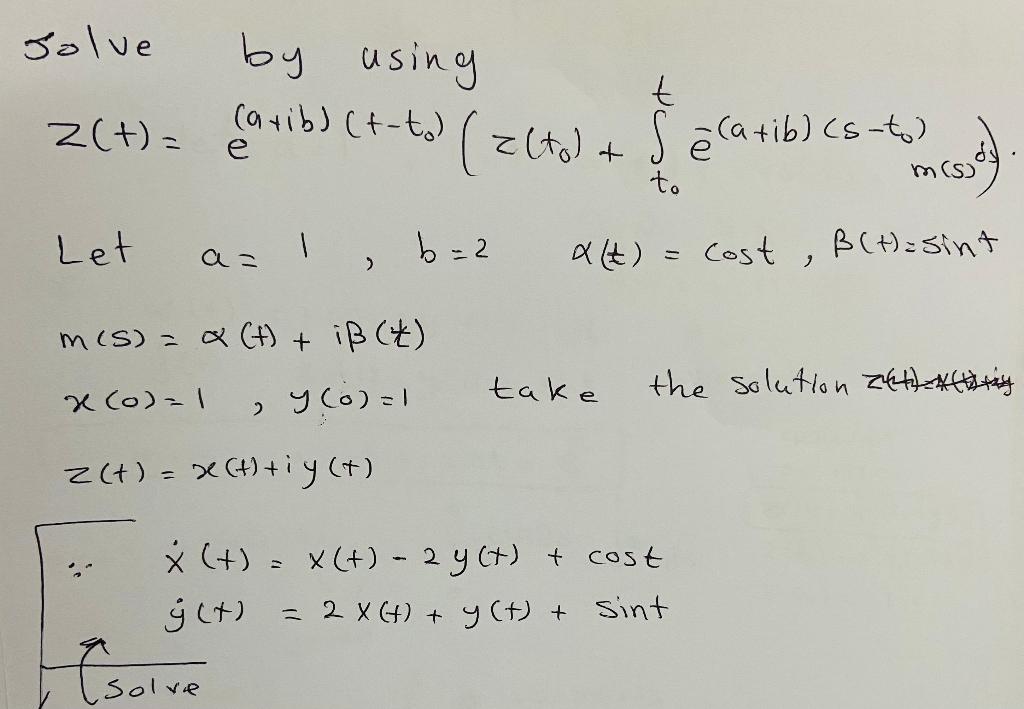 Solve by using
z(t) = e^(a+ib)(t-t₀) ( z(t₀) + ∫_{t₀}^{t} e^-(a+ib)(s-t₀) m(s) ds ).
Let a = 1 , b = 2 α(t) = cost , β(t) = sint
m(s) = α(t) + iβ(t)
x(0) = 1 , y(0) = 1 take the solution
z(t) = x(t) + i y(t)
∵ ẋ(t) = x(t) - 2y(t) + cost
ẏ(t) = 2x(t) + y(t) + sint
Solve